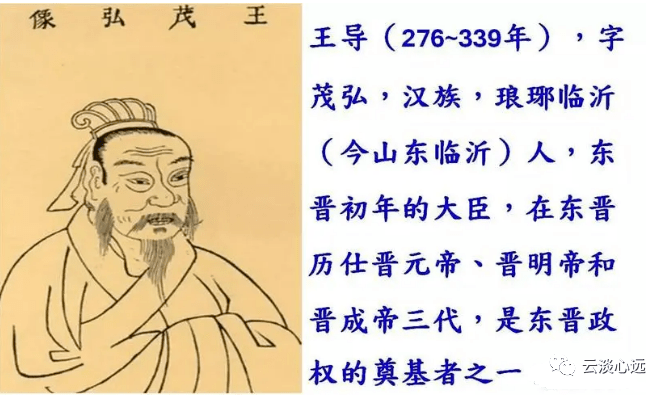 王茂弘像
王导（276~339年），字
茂弘，汉族，琅琊临沂
（今山东临沂）人，东
晋初年的大臣，在东晋
历仕晋元帝、晋明帝和
晋成帝三代，是东晋政
权的奠基者之一
云淡心远